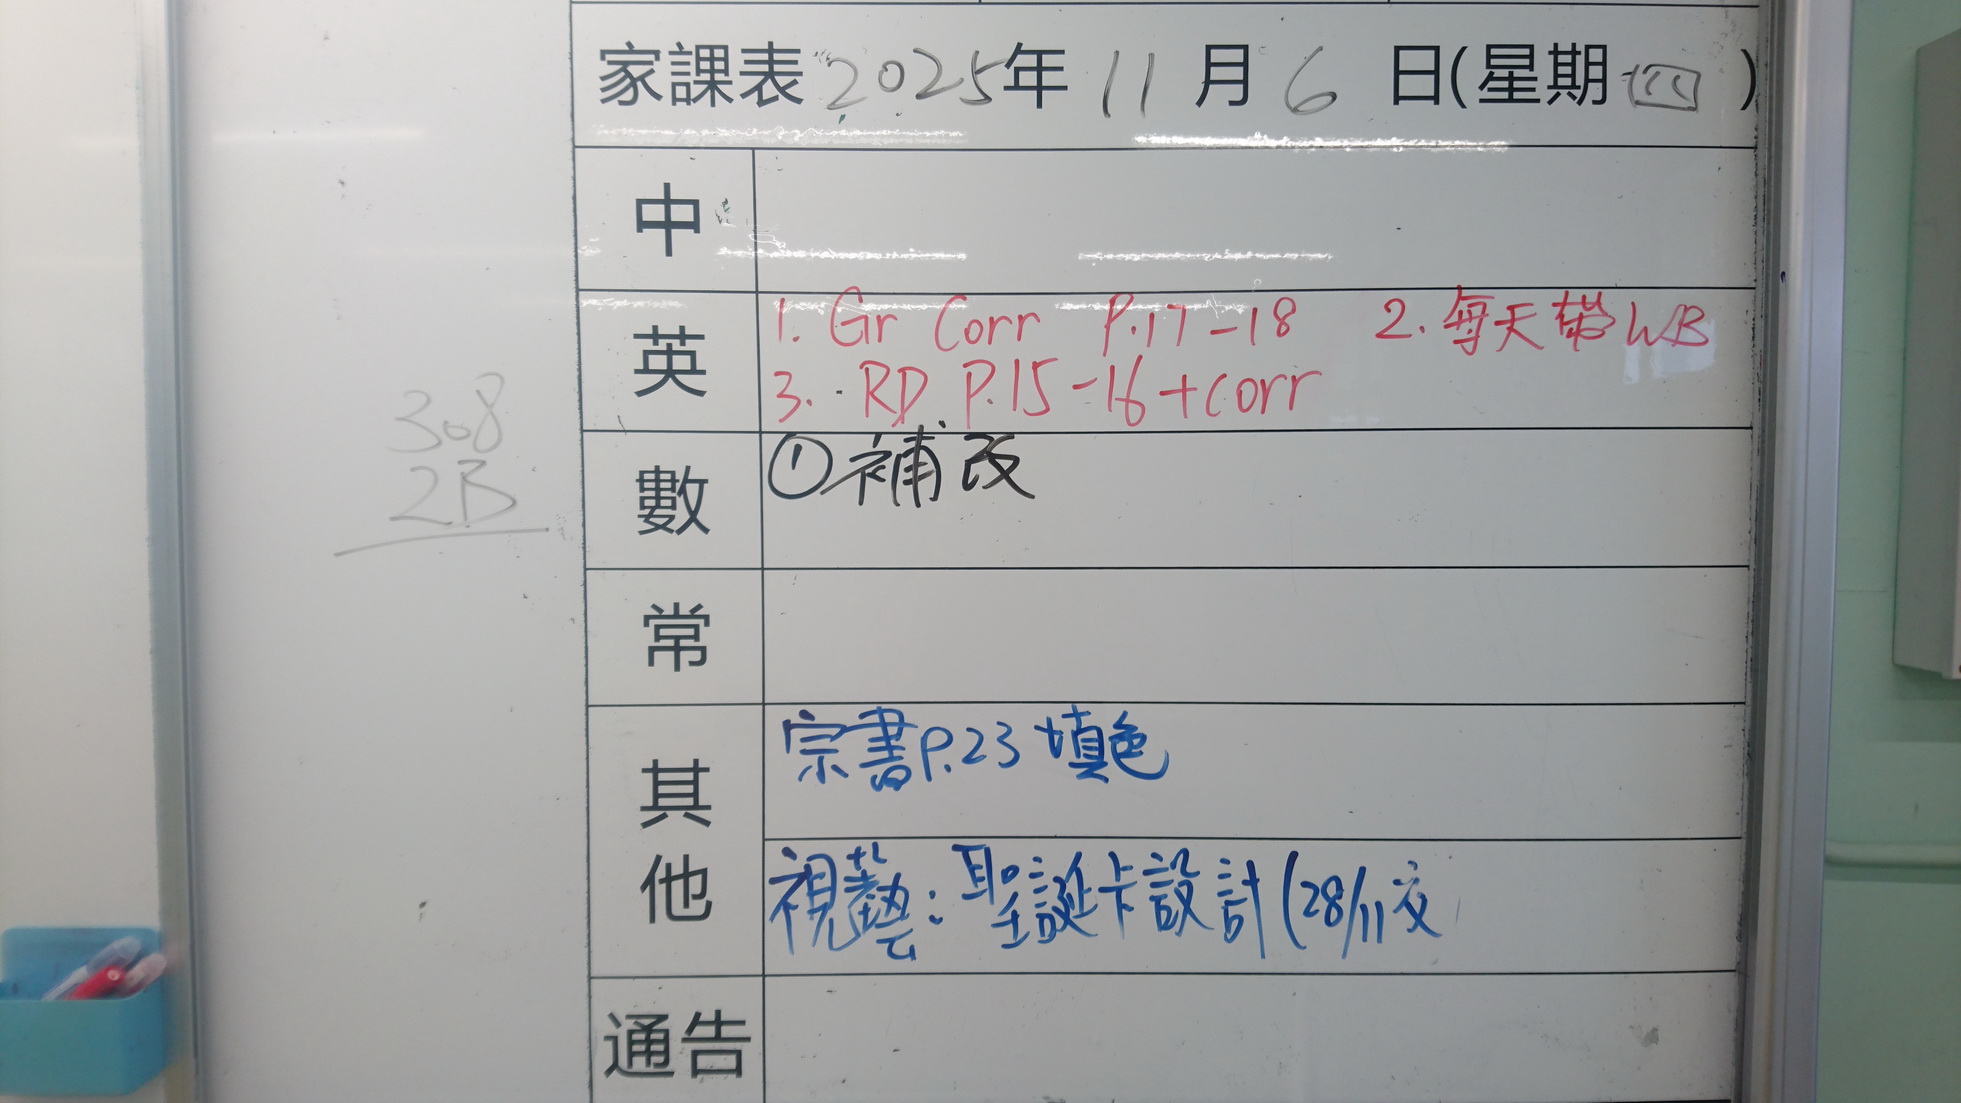 家課表 2025年 11 月 6 日(星期 四 )
中
英
1. Gr Corr P.17-18 2. 每天带WB
3. RD P.15-16+corr
308
2B
數
①補改
常
其他
宗書P.23 填色
視藝: 聖誕卡設計(28/11交
通告